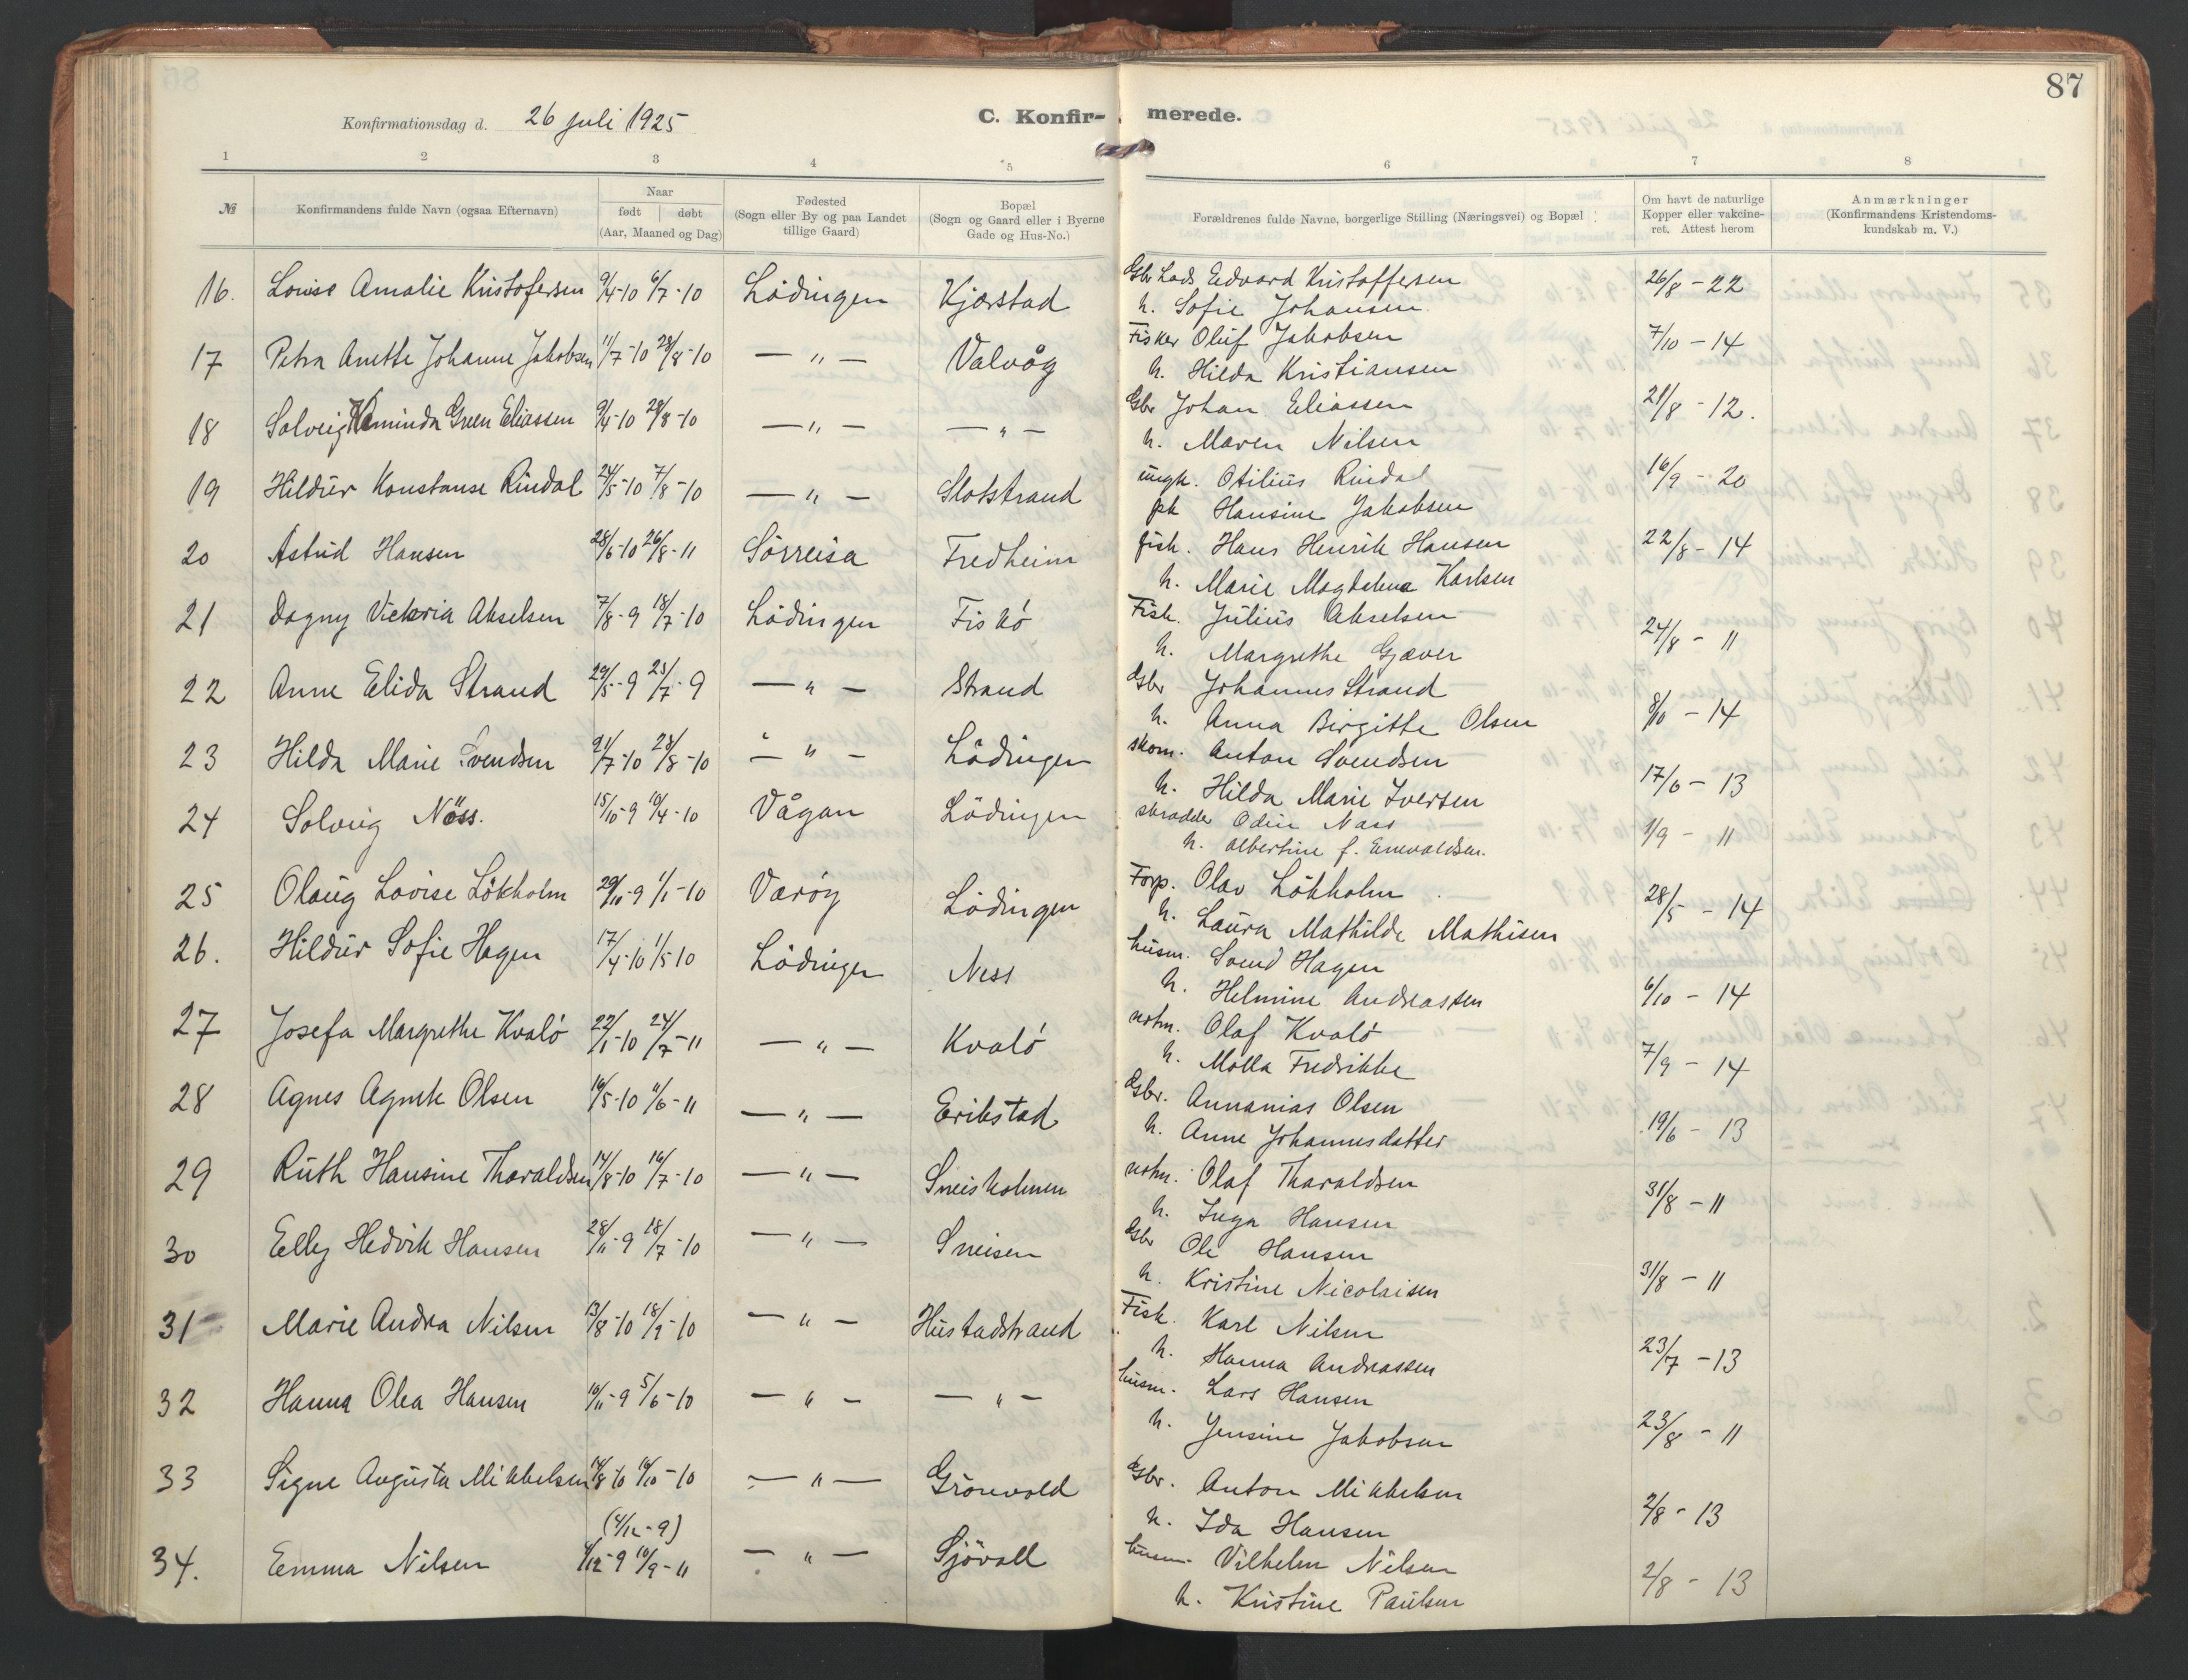 87
Konfirmationsdag d. 26 juli 1925
C. Konfir- merede.
1 2 3 4 5 6 7 8
№ Konfirmandens fulde Navn (ogsaa Efternavn) Naar født døbt (Aar, Maaned og Dag) Fødested (Sogn eller By og paa Landet tillige Gaard) Bopæl (Sogn og Gaard eller i Byerne Gade og Hus-No.) Forældrenes fulde Navne, borgerlige Stilling (Næringsvei) og Bopæl Om havt de naturlige Kopper eller vakcineret. Attest herom Anmærkninger (Konfirmandens Kristendomskundskab m. V.)
16. Louise Amalie Kristofersen 9/4-10 6/7-10 Lödingen Kjærstad Gbr Lads Edvard Kristoffersen 26/8-22
h. Sofie Johansen
17 Petra Anette Johanne Jakobsen 11/7-10 28/8-10 — " — Valvåg Fisker Oluf Jakobsen 7/10-14
h. Hilda Kristiansen
18 Solveig Green Eliassen 9/4-10 28/8-10 — " — — " — Gbr Johan Eliassen 21/8-12.
h. Maren Nilsen
19 Hildur Konstanse Rindal 24/5-10 7/8-10 — " — Slotstrand ungk. Otilius Rindal 16/9-20
pk Hansine Jakobsen
20 Astrid Hansen 28/6-10 26/8-11 Sörreisa Fredheim fisk. Hans Henrik Hansen 22/8-14
h. Marie Magdalena Karlsen
21 Dagny Victoria Akselsen 7/8-9 18/7-10 Lödingen Fiskö Fisk. Julius Akselsen 24/8-11
h. Margrethe Gjæver
22 Anne Elida Strand 29/5-9 25/7-9 — " — Strand Gbr Johannes Strand 8/10-14
h. Anna Birgitte Olsen
23 Hilda Marie Svendsen 21/7-10 28/8-10 — " — Lödingen skom. Anton Svendsen 17/6-13
h. Hilda Marie Iversen
24 Solveig Næss. 15/10-9 10/4-10 Vågan Lödingen skradder Odin Næss 1/9-11
h. Albertine f. Enevoldsen.
25 Olaug Lovise Lökholm 29/10-9 1/1-10 Værøy Lödingen Forp. Olav Lökholm 28/5-14
h. Laura Mathilde Mathisen
26. Hildur Sofie Hagen 17/4-10 1/5-10 Lödingen Ness husm. Svend Hagen 6/10-14
h. Helmine Andreassen
27 Josefa Margrethe Kvalö 22/1-10 24/7-11 — " — Kvalö notm. Olaf Kvalö 7/9-14
h. Molla Fredrikke
28 Agnes Agnete Olsen 16/5-10 11/6-11 — " — Erikstad Gbr. Annanias Olsen 19/6-13
h. Anne Johannesdatter
29 Ruth Hansine Tharaldsen 14/8-10 16/7-10 — " — Sneisholmen notm. Olaf Tharaldsen 31/8-11
h. Inga Hansen
30 Elly Hedvik Hansen 28/11-9 18/7-10 — " — Sneisen Gbr Ole Hansen 31/8-11
h. Kristine Nicolaisen
31 Marie Andrea Nilsen 13/8-10 18/9-10 — " — Hustadstrand Fisk. Karl Nilsen 23/7-13
h. Hanna Andreassen
32 Hanna Olea Hansen 16/11-9 5/6-10 — " — — " — husm. Lars Hansen 23/8-11
h. Jensine Jakobsen
33 Signe Augusta Mikkelsen 14/8-10 16/10-10 — " — Grönvold Gbr. Anton Mikkelsen 2/8-13
h. Ida Hansen
(4/12-9)
34. Emma Nilsen 4/12-9 10/9-11 — " — Sjövoll husm Vilhelm Nilsen 2/8-13
h. Kristine Paulsen